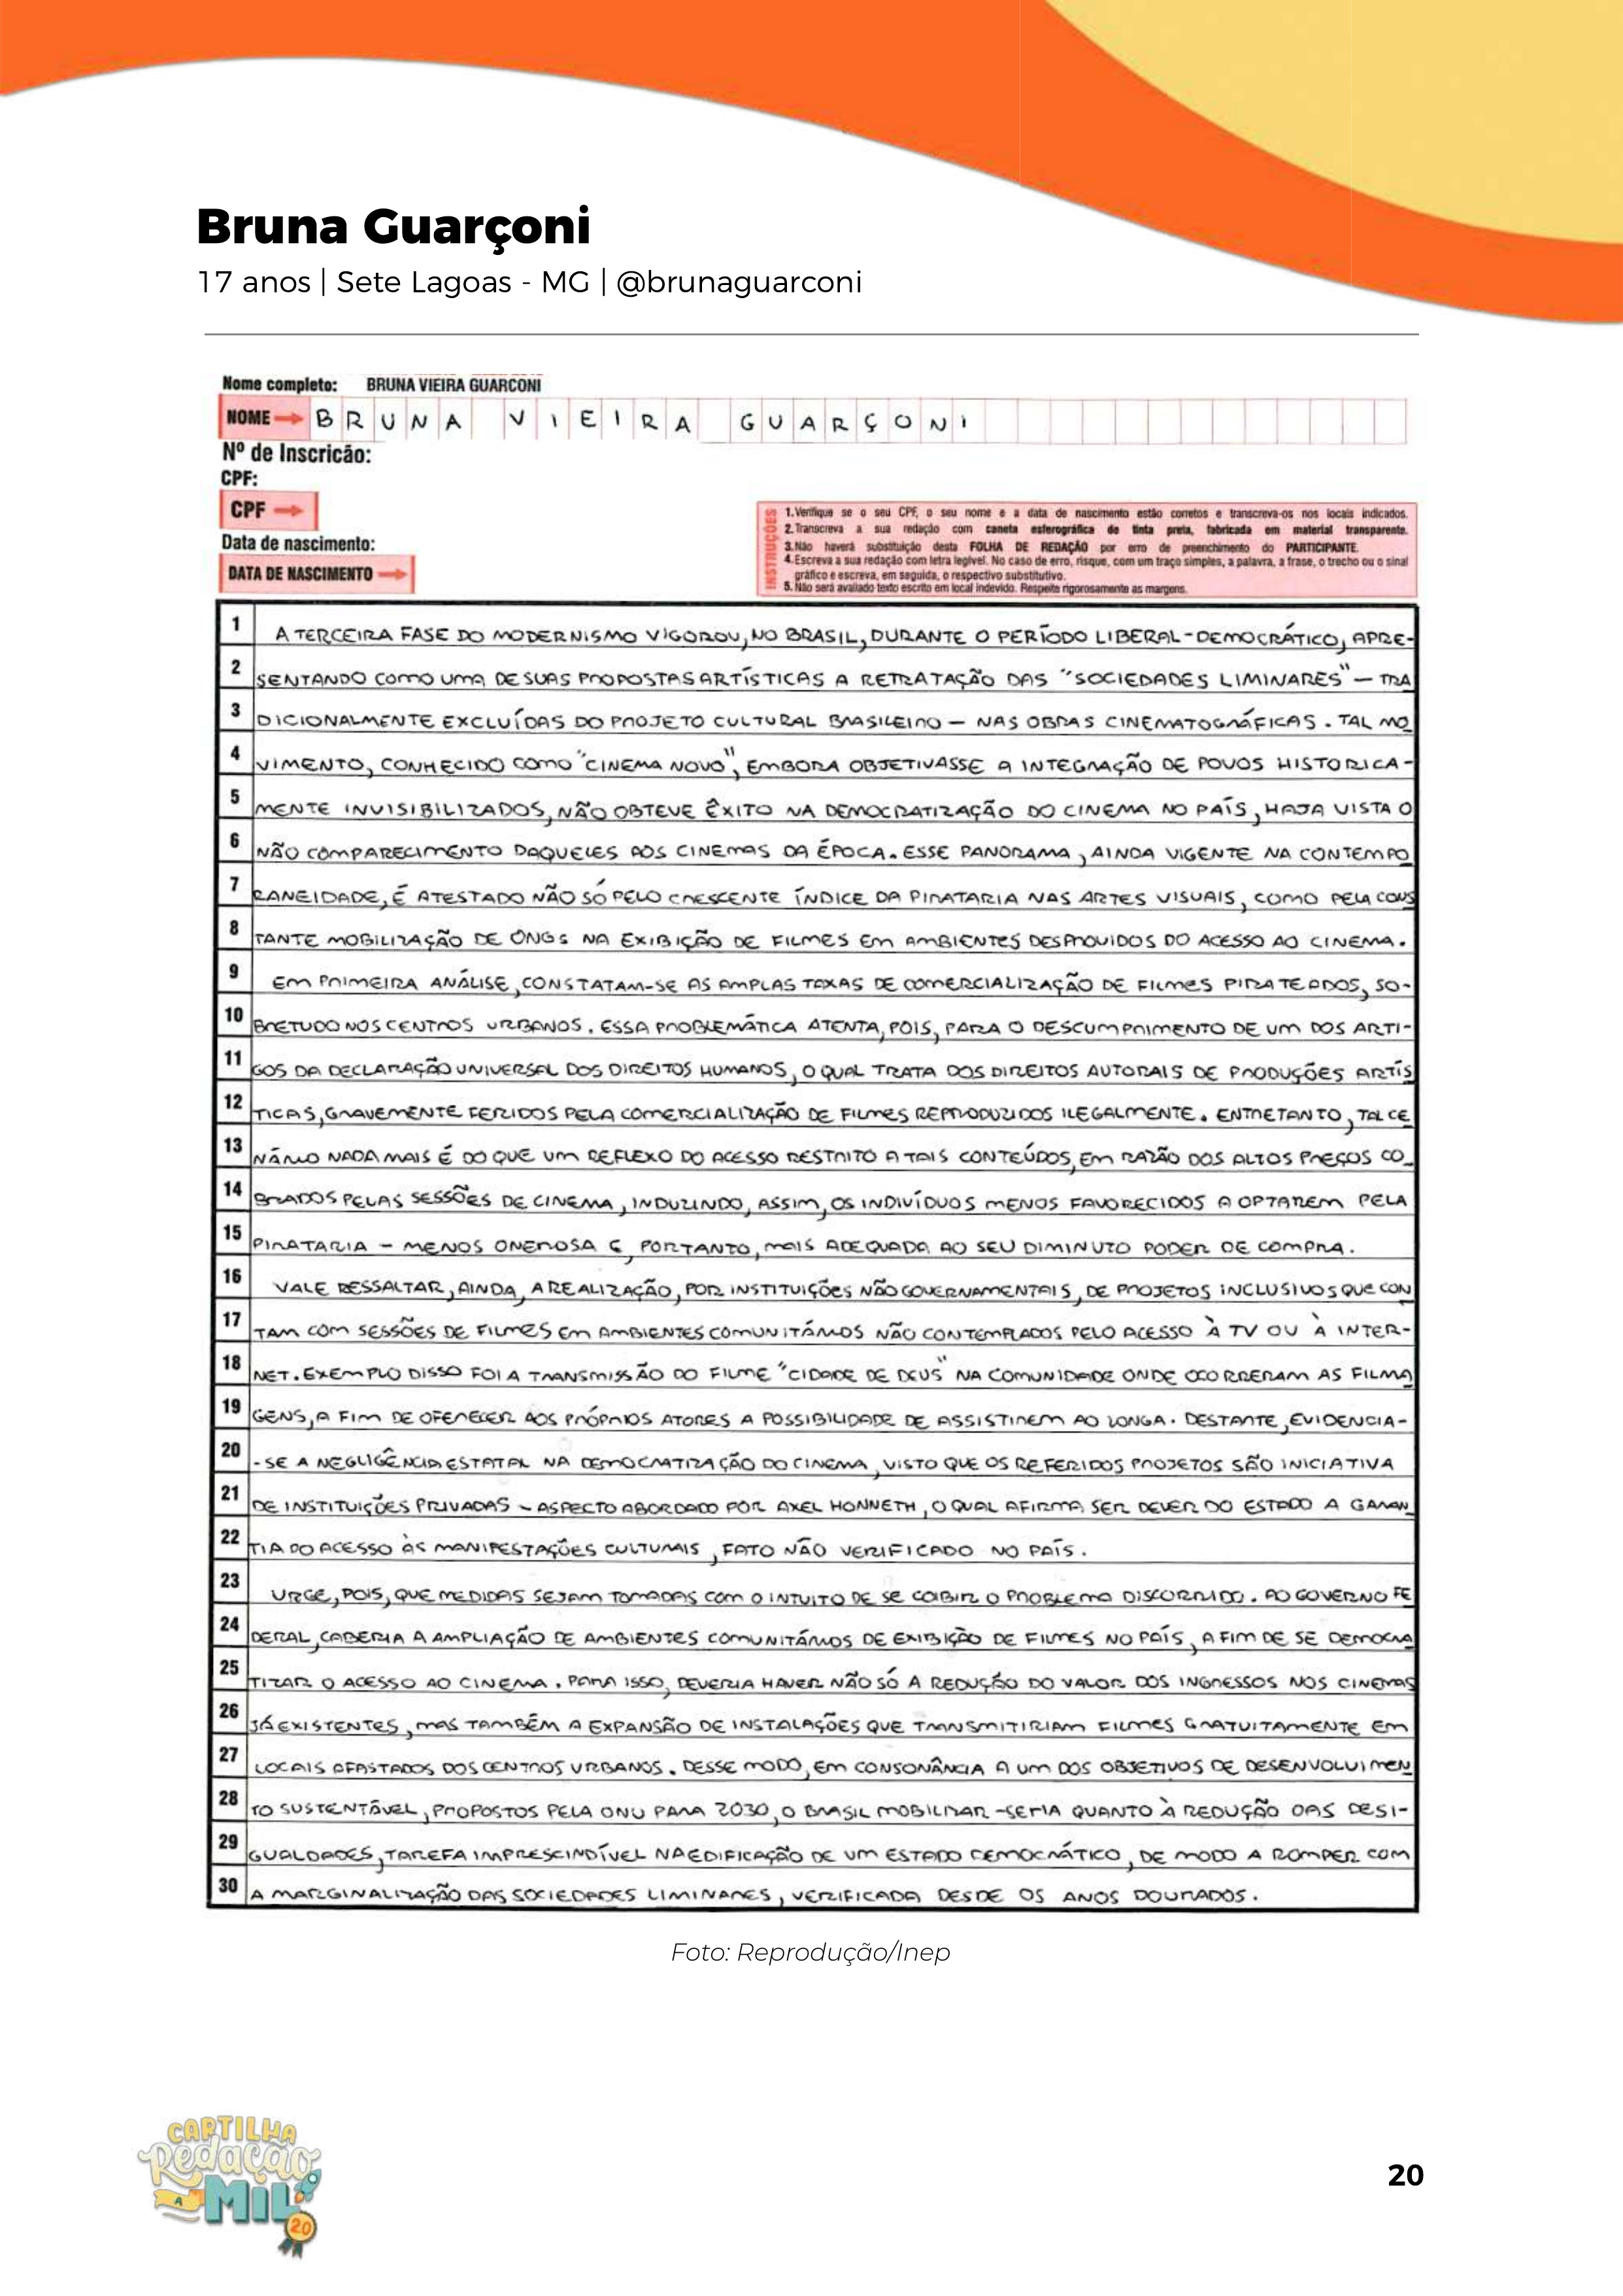 Bruna Guarçoni
17 anos | Sete Lagoas - MG | @brunaguarconi
Nome completo: BRUNA VIEIRA GUARCONI
NOME BRUNA VIEIRA GUARÇONI
Nº de Inscricão:
CPF:
CPF
Data de nascimento:
DATA DE NASCIMENTO
INSTRUÇÕES
1.Verifique se o seu CPF, o seu nome e a data de nascimento estão corretos e transcreva-os nos locais indicados.
2.Transcreva a sua redação com caneta esferográfica de tinta preta, fabricada em material transparente.
3.Não haverá substituição desta FOLHA DE REDAÇÃO por erro de preenchimento do PARTICIPANTE.
4.Escreva a sua redação com letra legível. No caso de erro, risque, com um traço simples, a palavra, a frase, o trecho ou o sinal
gráfico e escreva, em seguida, o respectivo substitutivo.
5.Não será avaliado texto escrito em local indevido. Respeite rigorosamente as margens.
1 A TERCEIRA FASE DO MODERNISMO VIGOROU, NO BRASIL, DURANTE O PERÍODO LIBERAL-DEMOCRÁTICO, APRE-
2 SENTANDO COMO UMA DE SUAS PROPOSTAS ARTÍSTICAS A RETRATAÇÃO DAS "SOCIEDADES LIMINARES" – TRA
3 DICIONALMENTE EXCLUÍDAS DO PROJETO CULTURAL BRASILEIRO – NAS OBRAS CINEMATOGRÁFICAS. TAL MO
4 VIMENTO, CONHECIDO COMO "CINEMA NOVO", EMBORA OBJETIVASSE A INTEGRAÇÃO DE POVOS HISTORICA-
5 MENTE INVISIBILIZADOS, NÃO OBTEVE ÊXITO NA DEMOCRATIZAÇÃO DO CINEMA NO PAÍS, HAJA VISTA O
6 NÃO COMPARECIMENTO DAQUELES AOS CINEMAS DA ÉPOCA. ESSE PANORAMA, AINDA VIGENTE NA CONTEMPO
7 RANEIDADE, É ATESTADO NÃO SÓ PELO CRESCENTE ÍNDICE DA PIRATARIA NAS ARTES VISUAIS, COMO PELA CONS
8 TANTE MOBILIZAÇÃO DE ONGs NA EXIBIÇÃO DE FILMES EM AMBIENTES DESPROVIDOS DO ACESSO AO CINEMA.
9 EM PRIMEIRA ANÁLISE, CONSTATAM-SE AS AMPLAS TAXAS DE COMERCIALIZAÇÃO DE FILMES PIRATEADOS, SO-
10 BRETUDO NOS CENTROS URBANOS. ESSA PROBLEMÁTICA ATENTA, POIS, PARA O DESCUMPRIMENTO DE UM DOS ARTI-
11 GOS DA DECLARAÇÃO UNIVERSAL DOS DIREITOS HUMANOS, O QUAL TRATA DOS DIREITOS AUTORAIS DE PRODUÇÕES ARTÍS
12 TICAS, GRAVEMENTE FERIDOS PELA COMERCIALIZAÇÃO DE FILMES REPRODUZIDOS ILEGALMENTE. ENTRETANTO, TAL CE
13 NÁRIO NADA MAIS É DO QUE UM REFLEXO DO ACESSO RESTRITO A TAIS CONTEÚDOS, EM RAZÃO DOS ALTOS PREÇOS CO_
14 BRADOS PELAS SESSÕES DE CINEMA, INDUZINDO, ASSIM, OS INDIVÍDUOS MENOS FAVORECIDOS A OPTAREM PELA
15 PIRATARIA – MENOS ONEROSA E, PORTANTO, MAIS ADEQUADA AO SEU DIMINUTO PODER DE COMPRA.
16 VALE RESSALTAR, AINDA, A REALIZAÇÃO, POR INSTITUIÇÕES NÃO GOVERNAMENTAIS, DE PROJETOS INCLUSIVOS QUE CON
17 TAM COM SESSÕES DE FILMES EM AMBIENTES COMUNITÁRIOS NÃO CONTEMPLADOS PELO ACESSO À TV OU À INTER-
18 NET. EXEMPLO DISSO FOI A TRANSMISSÃO DO FILME "CIDADE DE DEUS" NA COMUNIDADE ONDE OCORRERAM AS FILMA
19 GENS, A FIM DE OFERECER AOS PRÓPRIOS ATORES A POSSIBILIDADE DE ASSISTIREM AO LONGA. DESTARTE, EVIDENCIA-
20 -SE A NEGLIGÊNCIA ESTATAL NA DEMOCRATIZAÇÃO DO CINEMA, VISTO QUE OS REFERIDOS PROJETOS SÃO INICIATIVA
21 DE INSTITUIÇÕES PRIVADAS – ASPECTO ABORDADO POR AXEL HONNETH, O QUAL AFIRMA SER DEVER DO ESTADO A GARAN
22 TIA DO ACESSO ÀS MANIFESTAÇÕES CULTURAIS, FATO NÃO VERIFICADO NO PAÍS.
23 URGE, POIS, QUE MEDIDAS SEJAM TOMADAS COM O INTUITO DE SE COIBIR O PROBLEMA DISCORRIDO. AO GOVERNO FE
24 DERAL, CABERIA A AMPLIAÇÃO DE AMBIENTES COMUNITÁRIOS DE EXIBIÇÃO DE FILMES NO PAÍS, A FIM DE SE DEMOCRA
25 TIZAR O ACESSO AO CINEMA. PARA ISSO, DEVERIA HAVER NÃO SÓ A REDUÇÃO DO VALOR DOS INGRESSOS NOS CINEMAS
26 JÁ EXISTENTES, MAS TAMBÉM A EXPANSÃO DE INSTALAÇÕES QUE TRANSMITIRIAM FILMES GRATUITAMENTE EM
27 LOCAIS AFASTADOS DOS CENTROS URBANOS. DESSE MODO, EM CONSONÂNCIA A UM DOS OBJETIVOS DE DESENVOLVIMEN
28 TO SUSTENTÁVEL, PROPOSTOS PELA ONU PARA 2030, O BRASIL MOBILIZAR-SERIA QUANTO À REDUÇÃO DAS DESI-
29 GUALDADES, TAREFA IMPRESCINDÍVEL NA EDIFICAÇÃO DE UM ESTADO DEMOCRÁTICO, DE MODO A ROMPER COM
30 A MARGINALIZAÇÃO DAS SOCIEDADES LIMINARES, VERIFICADA DESDE OS ANOS DOURADOS.
Foto: Reprodução/Inep
CARTILHA
Redação
A MIL
20
20